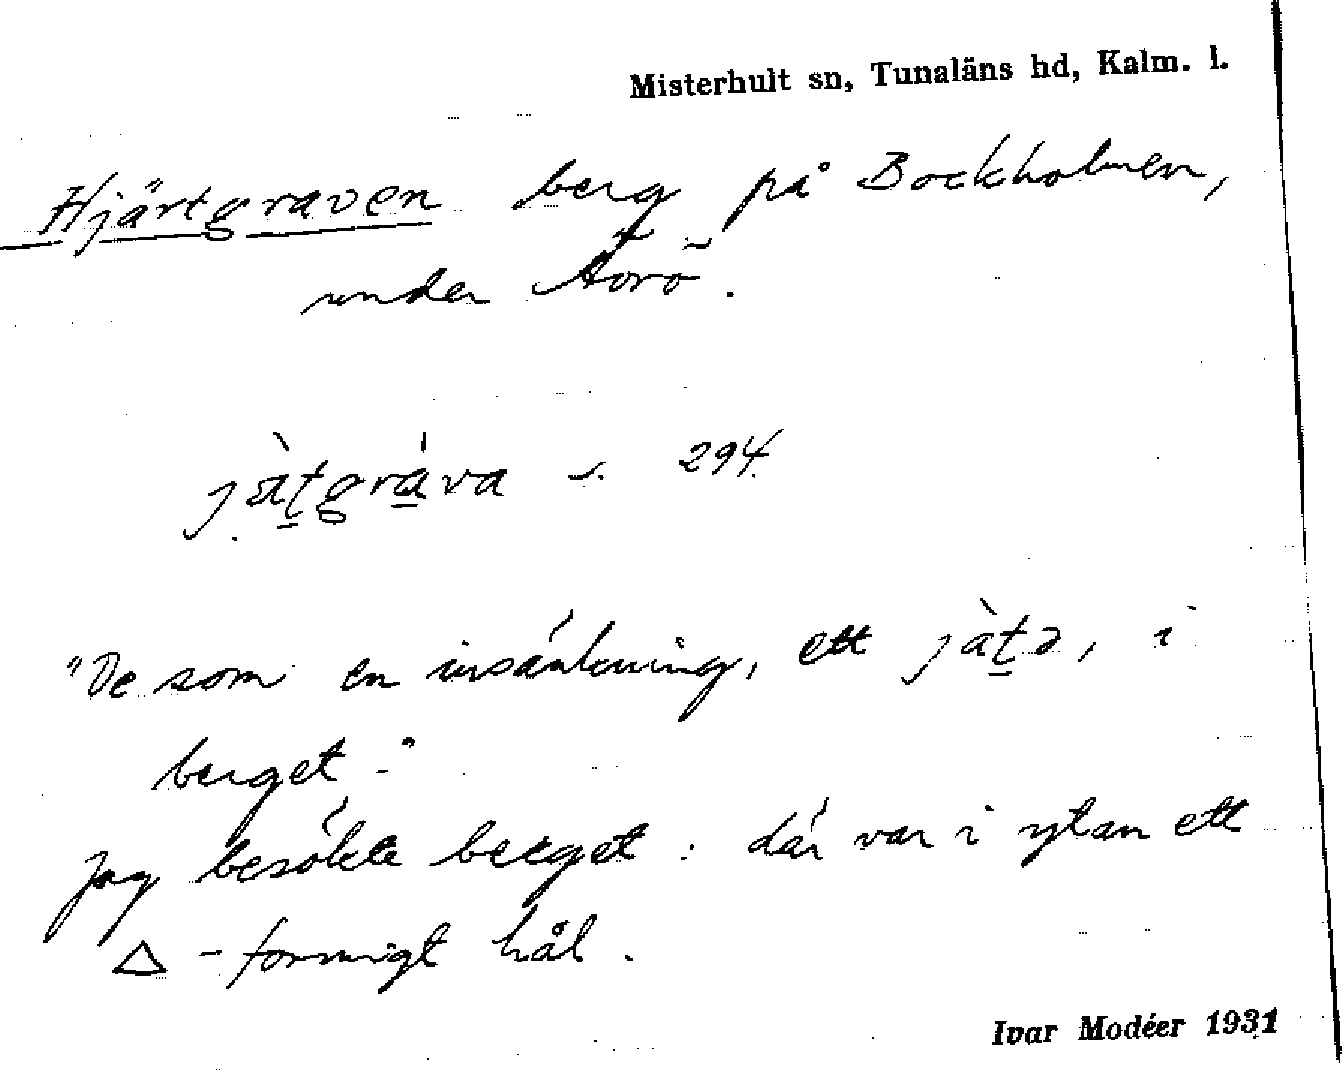 Misterhult sn, Tunaläns hd, Kalm. l.
Hjärtgraven berg på Bockholmen,
under Ävrö.
jàt̠grá̠va s. 294.
"De som en insänkning, ett jàt̠ə, i
berget."
Jag besökte berget: där var i ytan ett
△-formigt hål.
Ivar Modéer 1931